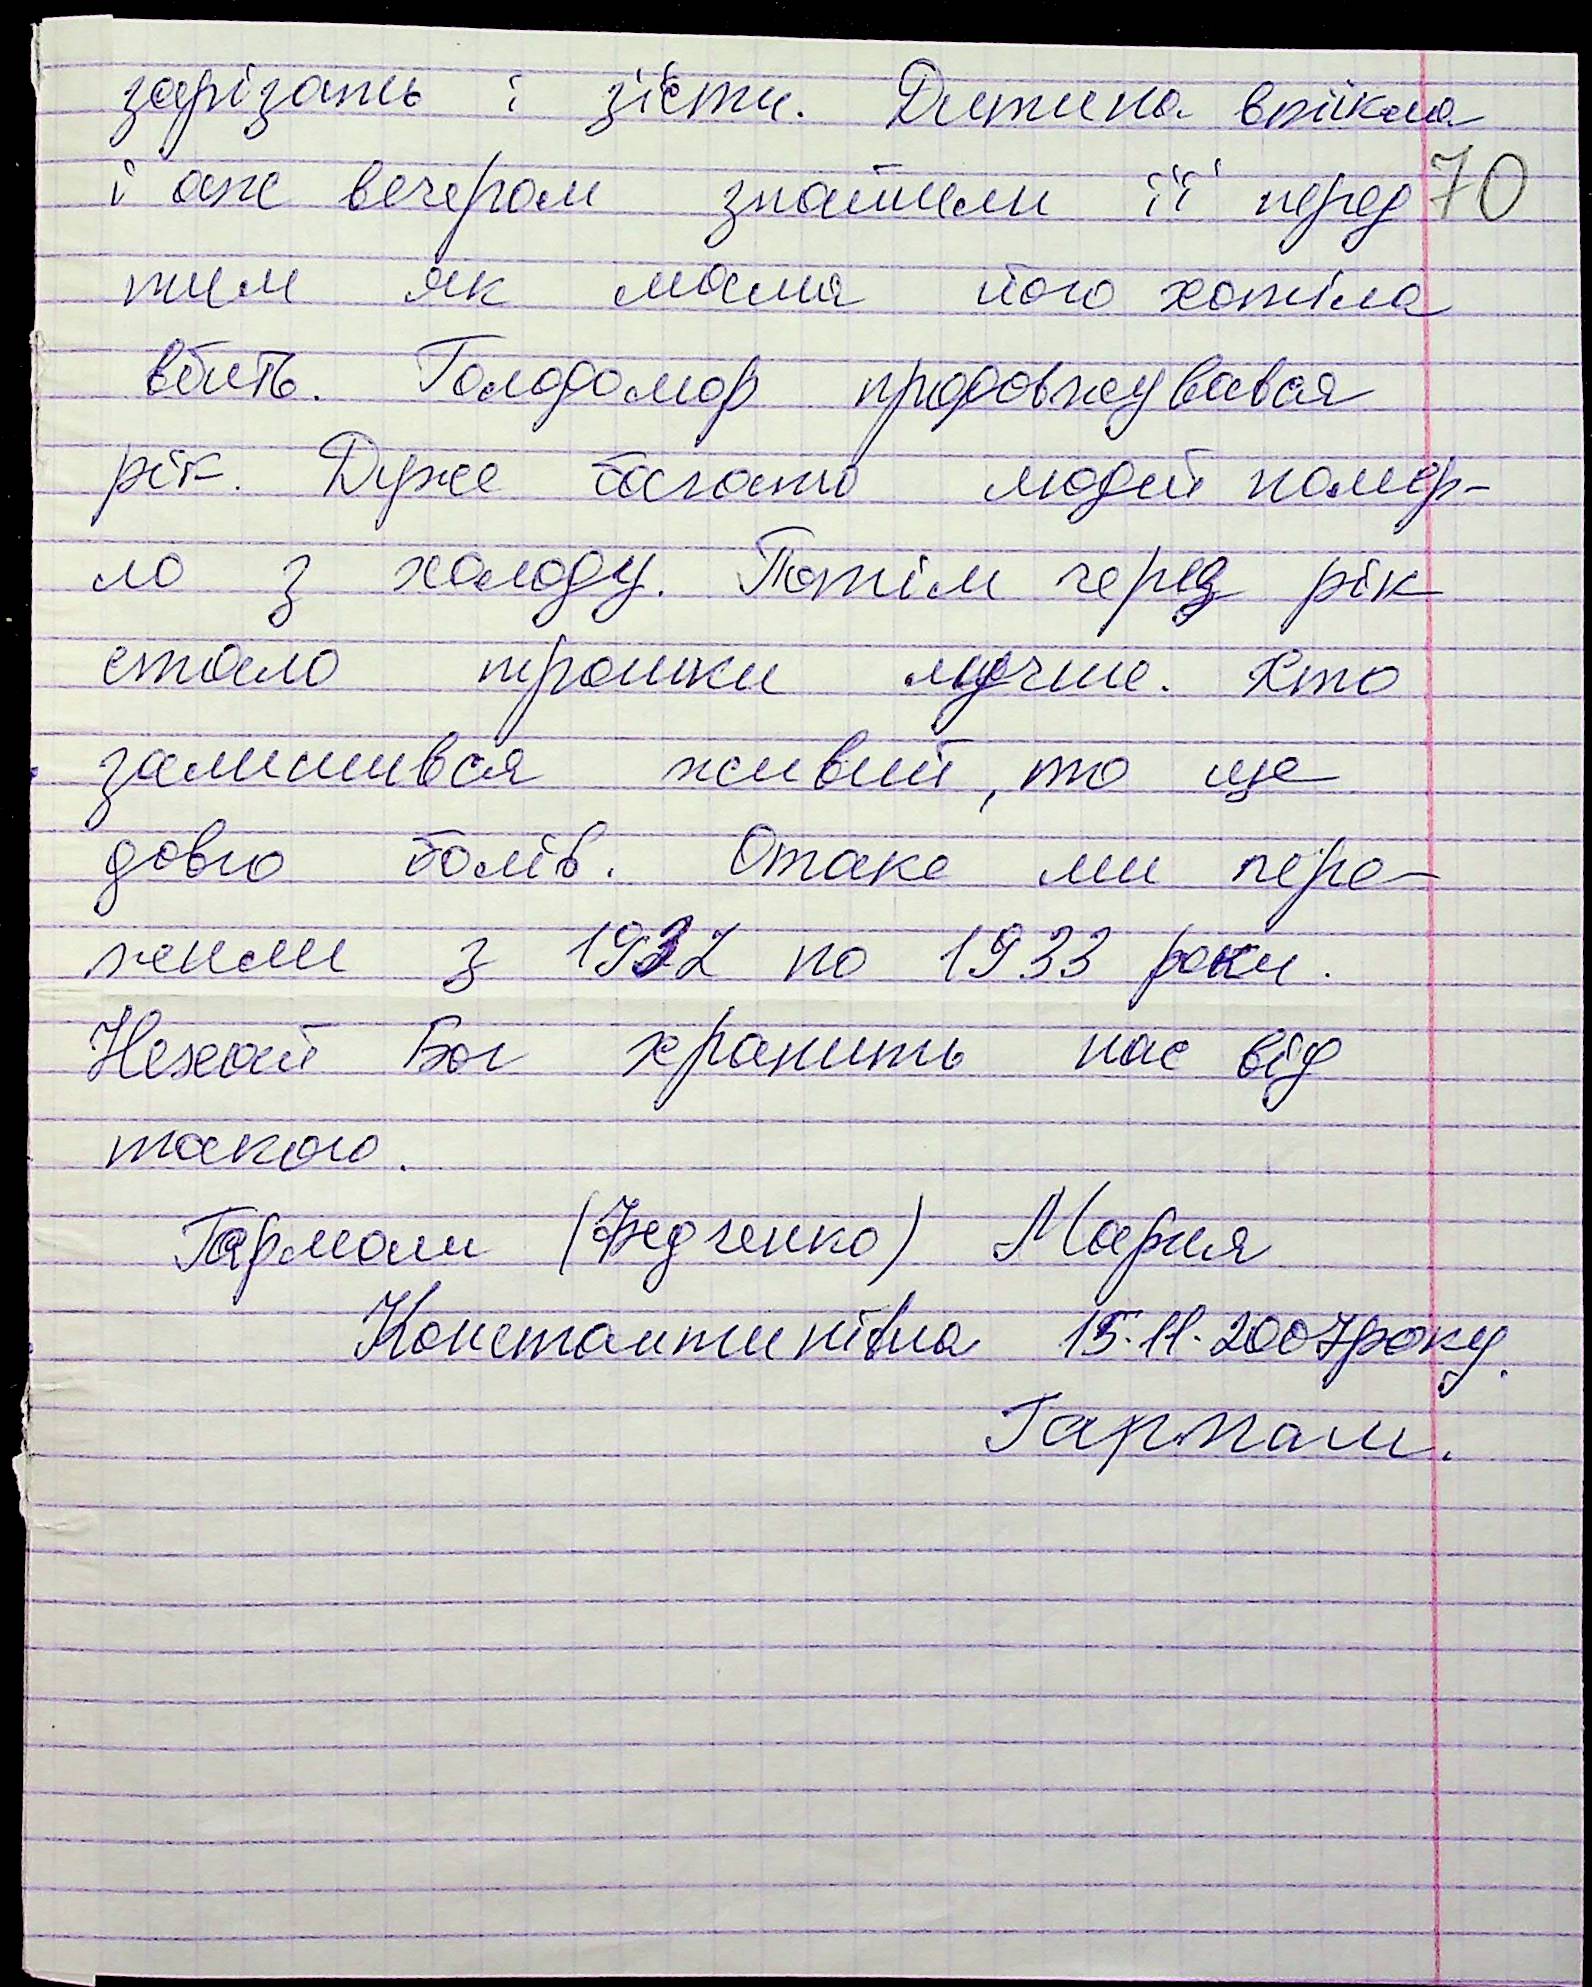 зарізать і зїсти. Дитина втікла
і аж вечером знайшли її перед 70
тим як мама його хотіла
вбить. Голодомор продовжувався
рік. Дуже багато людей помер-
ло з холоду. Потім через рік
стало трошки лучше. Хто
залишився живий, то ще
довго болів. Отаке ми пере-
жили з 1932 по 1933 роки.
Нехай Бог хранить нас від
такого.
Гармаш (Федченко) Мария
Константинівна 15.11.2007року.
Гармаш.